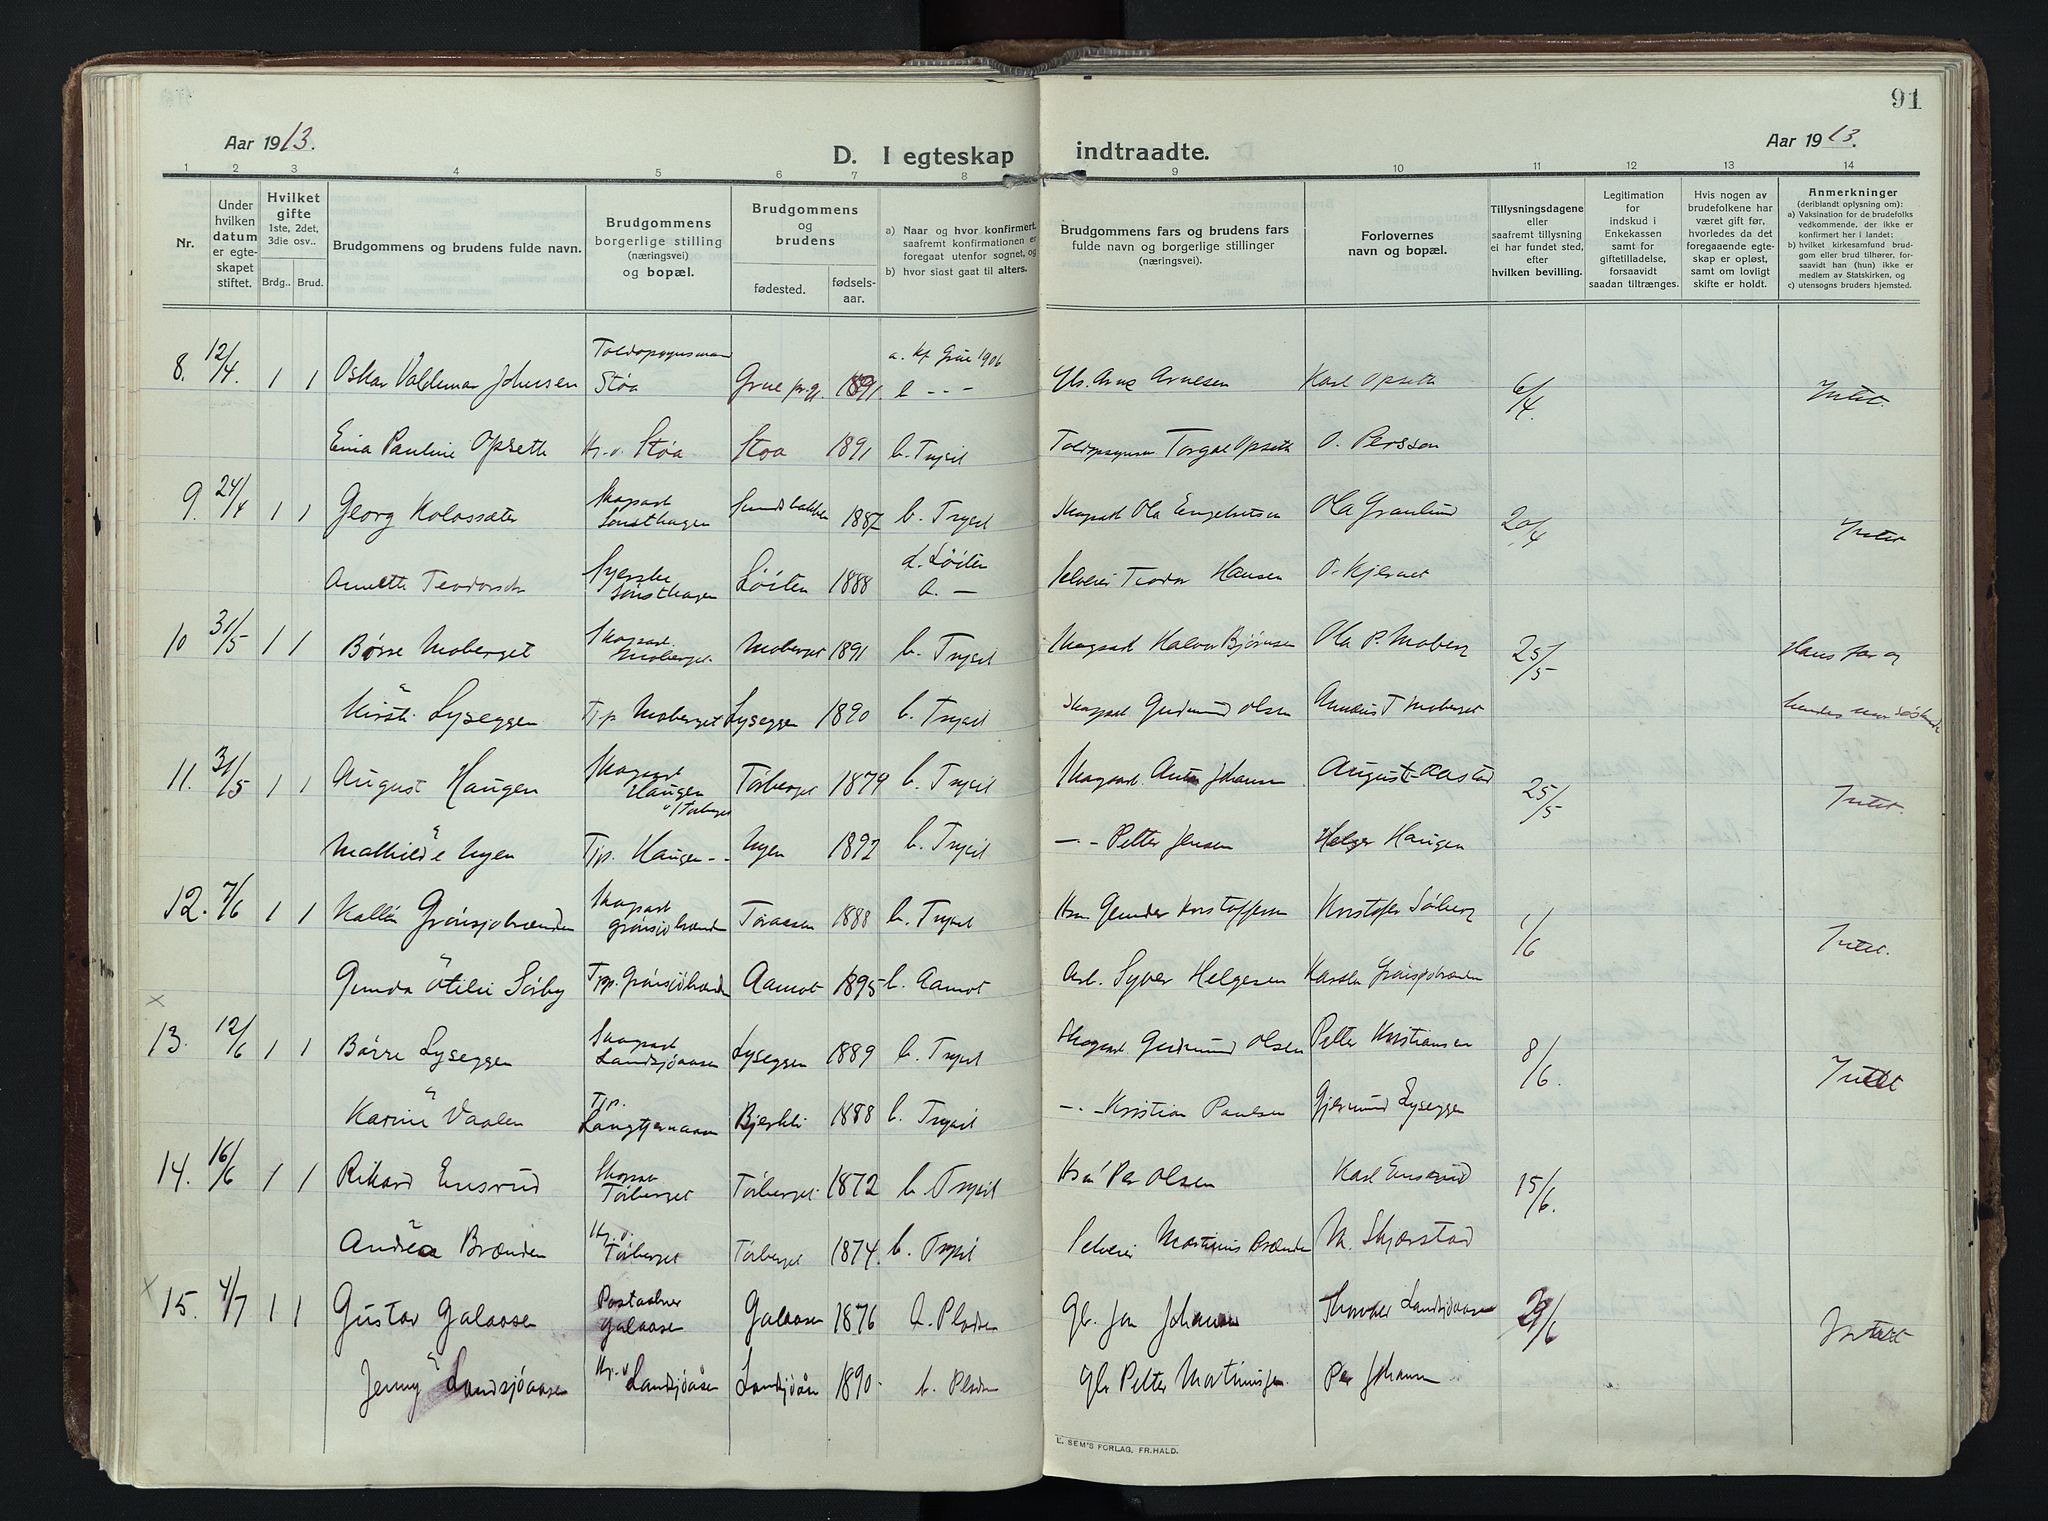 91
Aar 1913.
D. I egteskap indtraadte.
Aar 1913.
1 2 3 4 5 6 7 8 9 10 11 12 13 14
Nr.
Under hvilken datum er egteskapet stiftet.
Hvilket gifte 1ste, 2det, 3die osv..
Brdg.. Brud.
Brudgommens og brudens fulde navn.
Brudgommens borgerlige stilling (næringsvei) og bopæl.
Brudgommens og brudens
fødested. fødsels-aar.
a) Naar og hvor konfirmert, saafremt konfirmationen er foregaat utenfor sognet, og
b) hvor sidst gaat til alters.
Brudgommens fars og brudens fars fulde navn og borgerlige stillinger (næringsvei).
Forlovernes navn og bopæl.
Tillysningsdagene eller saafremt tillysning ei har fundet sted, efter hvilken bevilling.
Legitimation for indskud i Enkekassen samt for giftetilladelse, forsaavidt saadan tiltrænges.
Hvis nogen av brudefolkene har været gift før, hvorledes da det foregaaende egteskap er opløst, samt om lovligt skifte er holdt.
Anmerkninger (deriblandt oplysning om):
a) Vaksination for de brudefolks vedkommende, der ikke er konfirmert her i landet;
b) hvilket kirkesamfund brudgom eller brud tilhører, forsaavidt han (hun) ikke er medlem av Statskirken, og
c) utensogns bruders hjemsted.
8. 12/4. 1 1 Oskar Valdemar Johnsen Støa Grue pr.gj. 1891. a. kf Grue 1906 b - - - Arne Arnesen Karl Opseth 6/4. Intet.
Ema Pauline Opseth Støa Støa 1891 b. Trysil Torgal Opseth O. Persson
9. 24/4 1 1 Georg Kolossæter Skogsarb Sønsthagen Sundbakken 1887 b. Trysil Skogsarb Ola Engebretsen Ola Granlund 20/4 Intet
Anette Teodorsdr Syerske Sønsthagen Løiten 1888 d. Løiten a. - Selveier Teodor Hansen O. Kjernet
10 31/5 1 1 Børre Moberget Skogsarb. Moberget. Moberget 1891 b. Trysil Skogsarb Halvor Bjørnsen Ola P. Moberg 25/5 Hans far og
Kirsti Lyseggen Tjp Moberget Lyseggen 1890 b. Trysil Skogsarb Gudmund Olsen T Moberget hendes mor søskende
11. 31/5 1 1 August Haugen Skogsarb Haugen Tørberget 1879 b. Trysil Skogsarb Anton Johansen August Aastad 25/5 Intet.
Mathilde Nyen Tjp. Haugen - - Nyen 1892 b. Trysil - - Petter Jensen Helger Haugen
12. 7/6 1 1 Grønsjøbrænden Skogsarb Grønsjøbrænden Toraasen 1888 b. Trysil Gunder Kristoffersen Kristofer Søberg 1/6 Intet.
Gunda Otilie Sørby Tjp. Grønsjøbrænden Aamot 1895 b. Aamot Arb. Syver Helgesen Karsten Grønsjøbrænden
x
13. 12/6 1 1 Børre Lyseggen Skogsarb Landsjøaasen Lyseggen 1889 b. Trysil Skogsarb Gudmund Olsen Petter Kristiansen 8/6. Intet
Karine Vaalen Tjp. Langtjernaasen Bjerkli 1888 b. Trysil - - Kristian Paulsen Gjermund Lyseggen
14. 16/6 1 1 Rikard Ensrud Tørberget Tørberget 1872 b. Trysil Per Olsen Karl Ensrud 15/6.
Andrea Brænden Tørberget Tørberget 1874. b. Trysil Selveier Martinus Brænden M. Skjærstad
x
15. 4/7 1 1 Gustav Galaasen Postaabner Galaasen Galaasen 1876 b. Pladsen Gbr. Jon Johansen Thorvald Landsjøaasen 29/6 Intet
Jenny Landsjøaasen Landsjøaasen Landsjøaasen 1890 b. Pladsen Gbr Petter Martinussen Per Johansen
E. SEM'S FORLAG, FR.HALD.